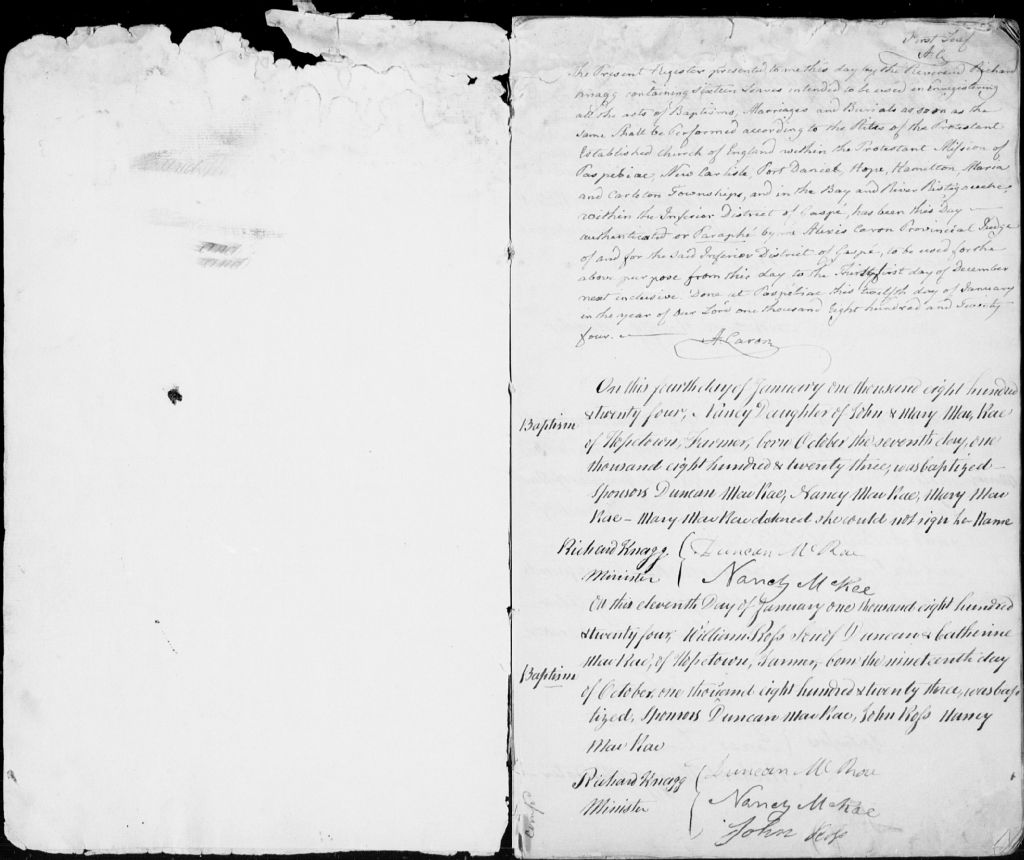 First Leaf
A. C.
The Present Register presented to me this day by the Reverend Richard
Knagg containing Sixteen Leaves intended to be used in enregistering
all the acts of Baptisms, Marriages and Burials as soon as the
same Shall be Performed according to the Rites of the Protestant
Established church of England within the Protestant Mission of
Paspebiac, New Carlisle, Port Daniel, Hope, Hamilton, Maria
and Carleton Townships, and in the Bay and River Ristigouche,
within the Inferior District of Gaspé, has been this Day
authenticated or Paraphé by me Alexis Caron Provincial Judge
of and for the said Inferior District of Gaspé, to be used for the
above purpose from this day to the Thirty first day of December
next inclusive. Done at Paspebiac this Twelfth day of January
in the year of Our Lord one thousand Eight hundred and Twenty
four.
A Caron
On this fourth day of January one thousand eight hundred
& twenty four, Nancy Daughter of John & Mary Mac Rae
Baptism
of Hopetown, Farmer, born October the seventh day, one
thousand eight hundred & twenty three, was baptized
Sponsors Duncan Mac Rae, Nancy Mac Rae, Mary Mac
Rae - Mary Mac Rae declared she could not sign he- Name
Richard Knagg Duncan Mc Rae
Minister Nancy McKee
On this eleventh Day of January one thousand eight hundred
& twenty four, William Ross son of Duncan & Catherine
Mac Rae, of Hopetown, Farmer, born the nineteenth day
Baptism
of October, one thousand eight hundred & twenty three, was bap
tized, Sponsors Duncan Mac Rae, John Ross Nancy
Mac Rae
Richard Knagg Duncan Mc Rae
Minister Nancy McKae
John Ross